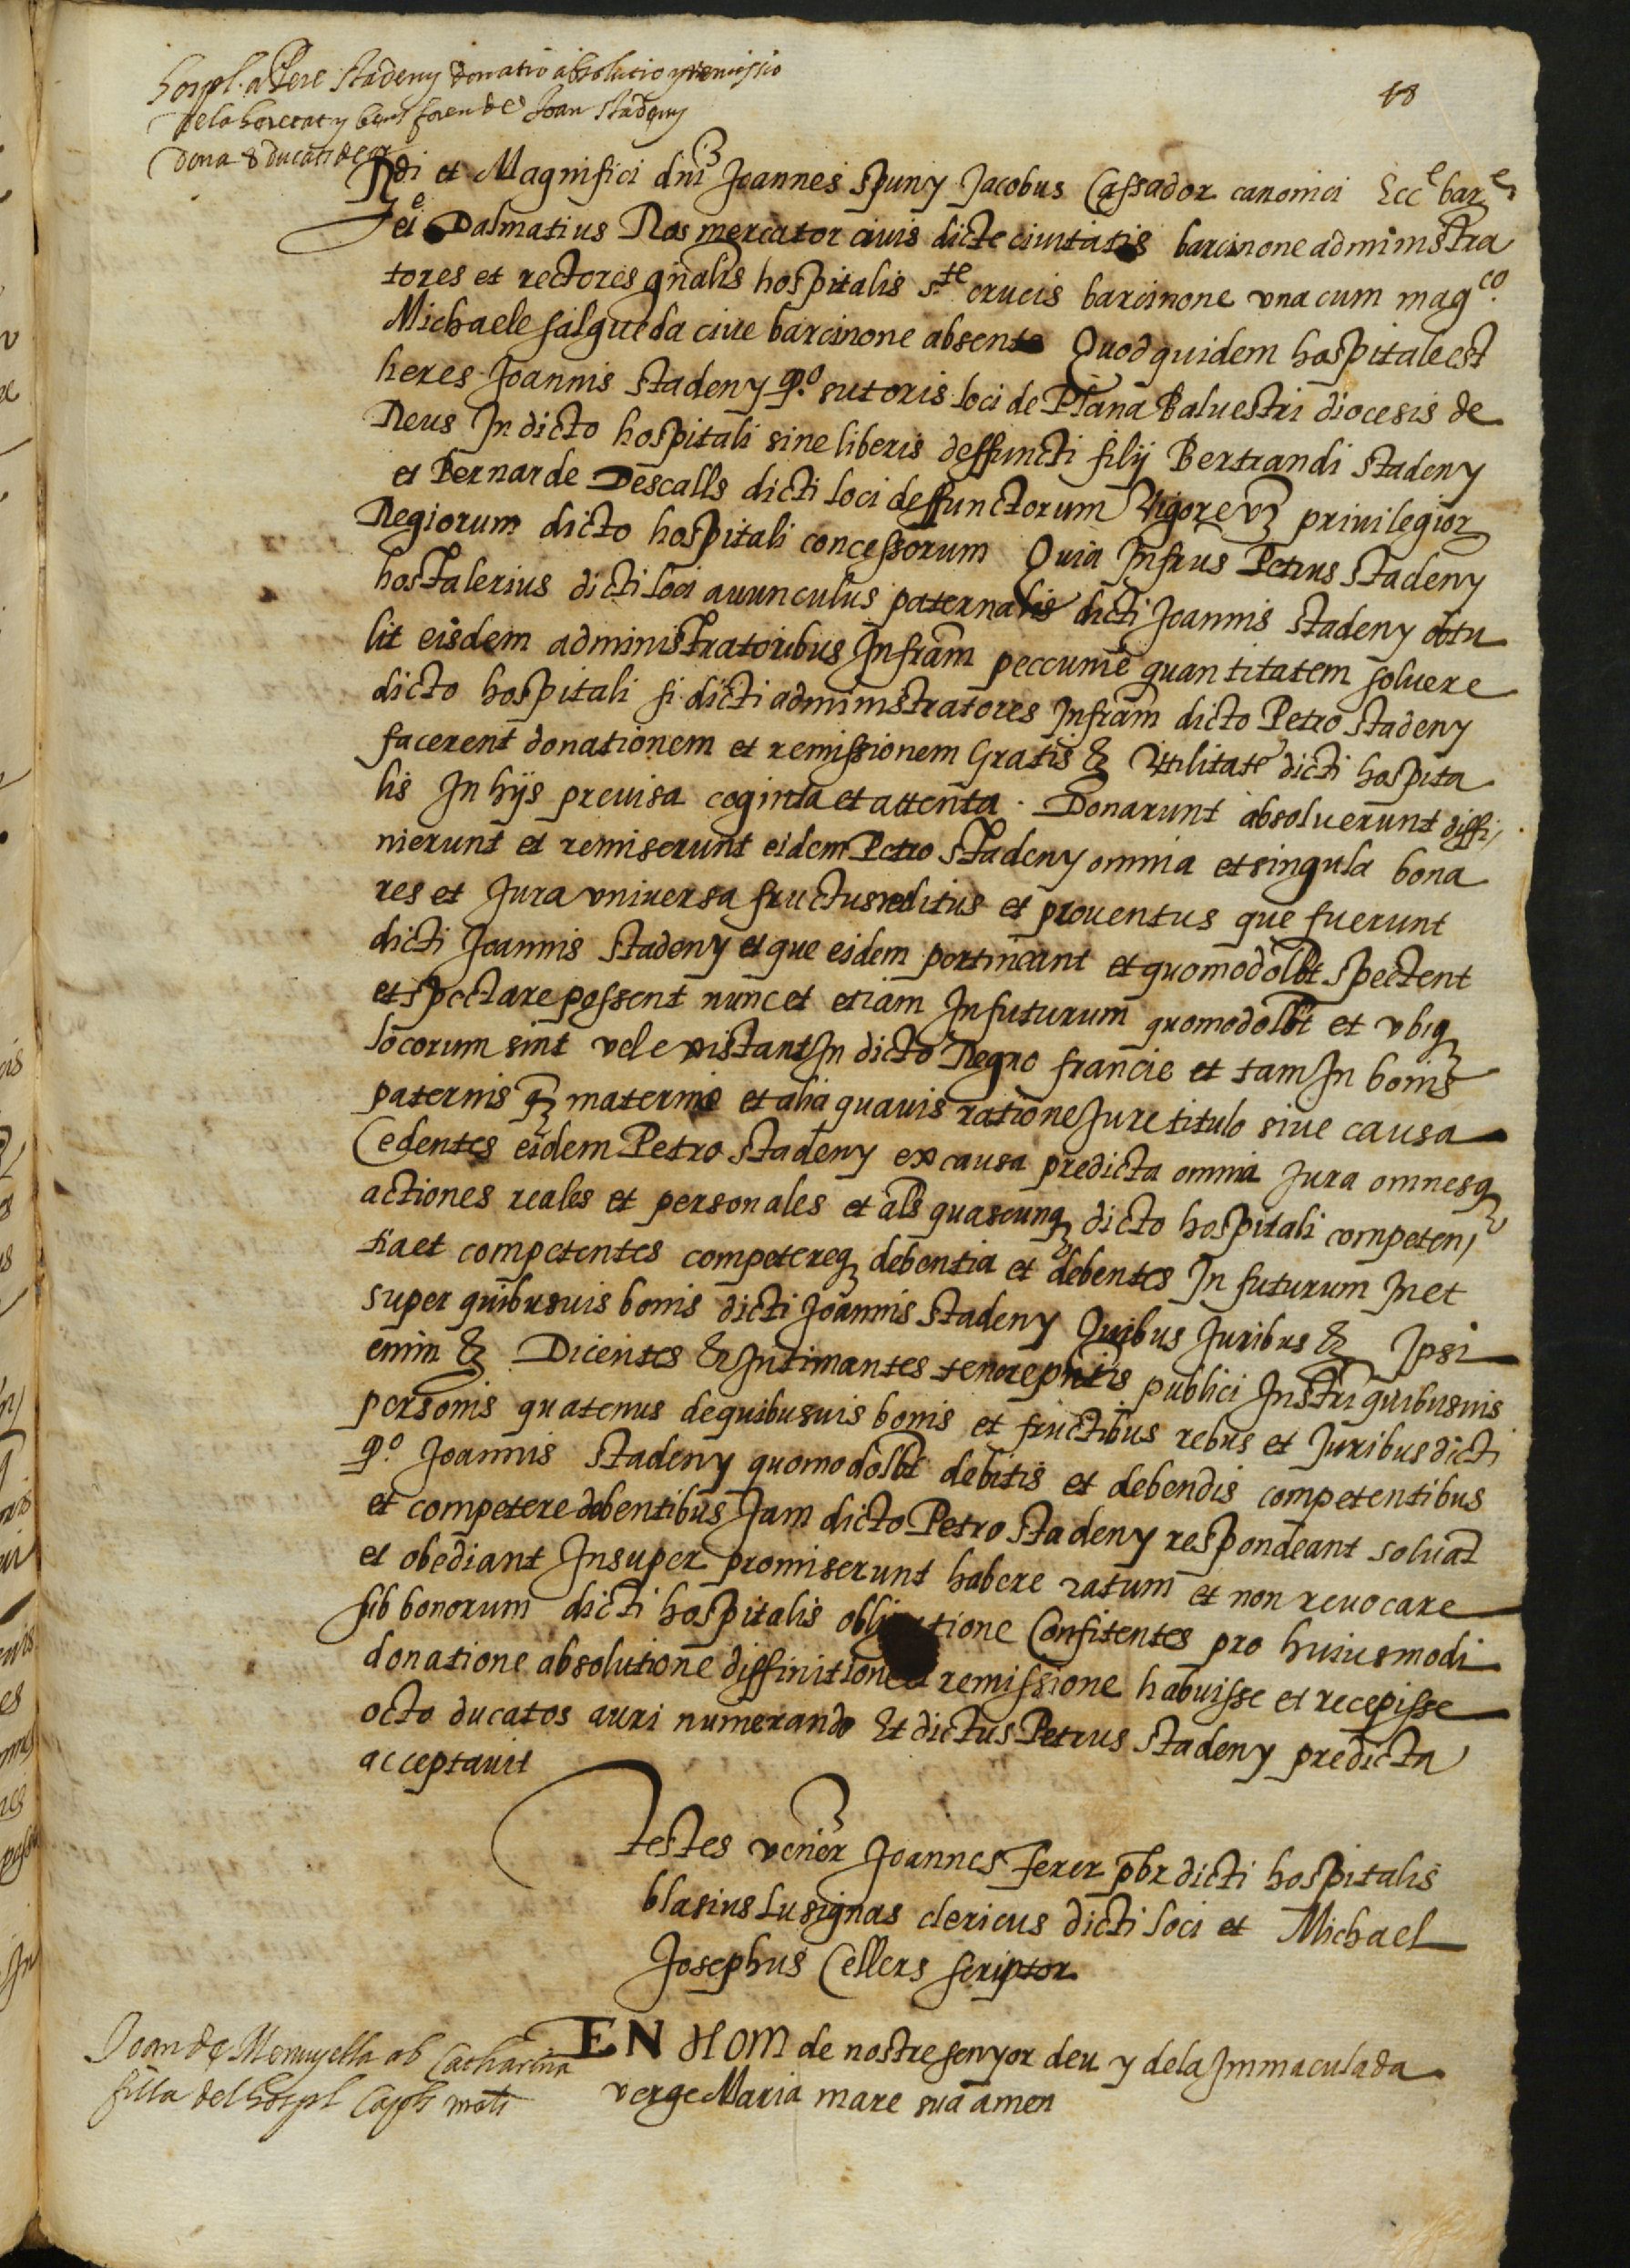 hospl. a Pere Stadeny donatio absolutio y remissio
dela heretat y bens foren de Joan Stadeny
Dona 8 ducats de or
18
Rdi et Magnifici dni Joannes Spuny Jacobus Cassador canonici Ecce bare
et Dalmatius Ros mercator civis dicte civitatis barcinone administra
tores et rectores gnalis hospitalis Ste crucis barcinone una cum magco
Michaele salgueda cive barcinone absente Quod quidem hospitale est
heres Joannis Stadeny qo sutoris loci de Plana Baluestri diocesis de
Reus In dicto hospitali sine liberis deffuncti filij Bertrandi Stadeny
et Bernarde Descalls dicti loci deffunctorum Vigore vz privilegior
Regiorum dicto hospitali concessorum Quia Infrus Petrus Stadeny
hostalerius dicti loci avunculus paternalis dicti Joannis Stadeny obtu
lit eisdem administratoribus Infram peccunie quantitatem solvere
dicto hospitali si dicti administratores Infram dicto Petro Stadeny
facerent donationem et remissionem Gratis & Utilitate dicti hospita
lis In hijs previsa cognita et attenta. Donarunt absoluerunt diffi
nierunt et remiserunt eidem Petro Stadeny omnia et singula bona
res et Jura universa fructus reditus et proventus que fuerunt
dicti Joannis Stadeny et que eidem pertineant et quomodolbt spectent
et spectare possent nunc et etiam In futurum quomodolbt et ubiq
locorum sint vel existant In dicto Regno francie et tam In bonis
paternis q maternis et alia quavis ratione Jure titulo sive causa
Cedentes eidem Petro Stadeny ex causa predicta omnia Jura omnesq
actiones reales et personales et als quascunq dicto hospitali competen
tia et competentes competereq debentia et debentes In futurum In et
super quibusvis bonis dicti Joannis Stadeny Quibus Juribus & Ipsi
enim & Dicentes & Intimantes tenore pntis publici Instri quibusvis
personis quatenus de quibusvis bonis et fructibus rebus et Juribus dicti
qo Joannis Stadeny quomodolbt debitis et debendis competentibus
et competere debentibus Jam dicto Petro Stadeny respondeant solvat
et obediant Insuper promiserunt habere ratum et non revocare
sub bonorum dicti hospitalis obligatione Confitentes pro huiusmodi
donatione absolutione diffinitione et remissione habuisse et recepisse
octo ducatos auri numerando Et dictus Petrus Stadeny predicta
acceptavit
Testes vener Joannes Ferer pbr dicti hospitalis
blasius Lusignas clericus dicti loci et Michael
Josephus Cellers scriptor
Joan de Momuyella ab Catharina
filla del hospl Capls matr
EN NOM de nostre senyor deu y dela Immaculada
verge Maria mare sua amen